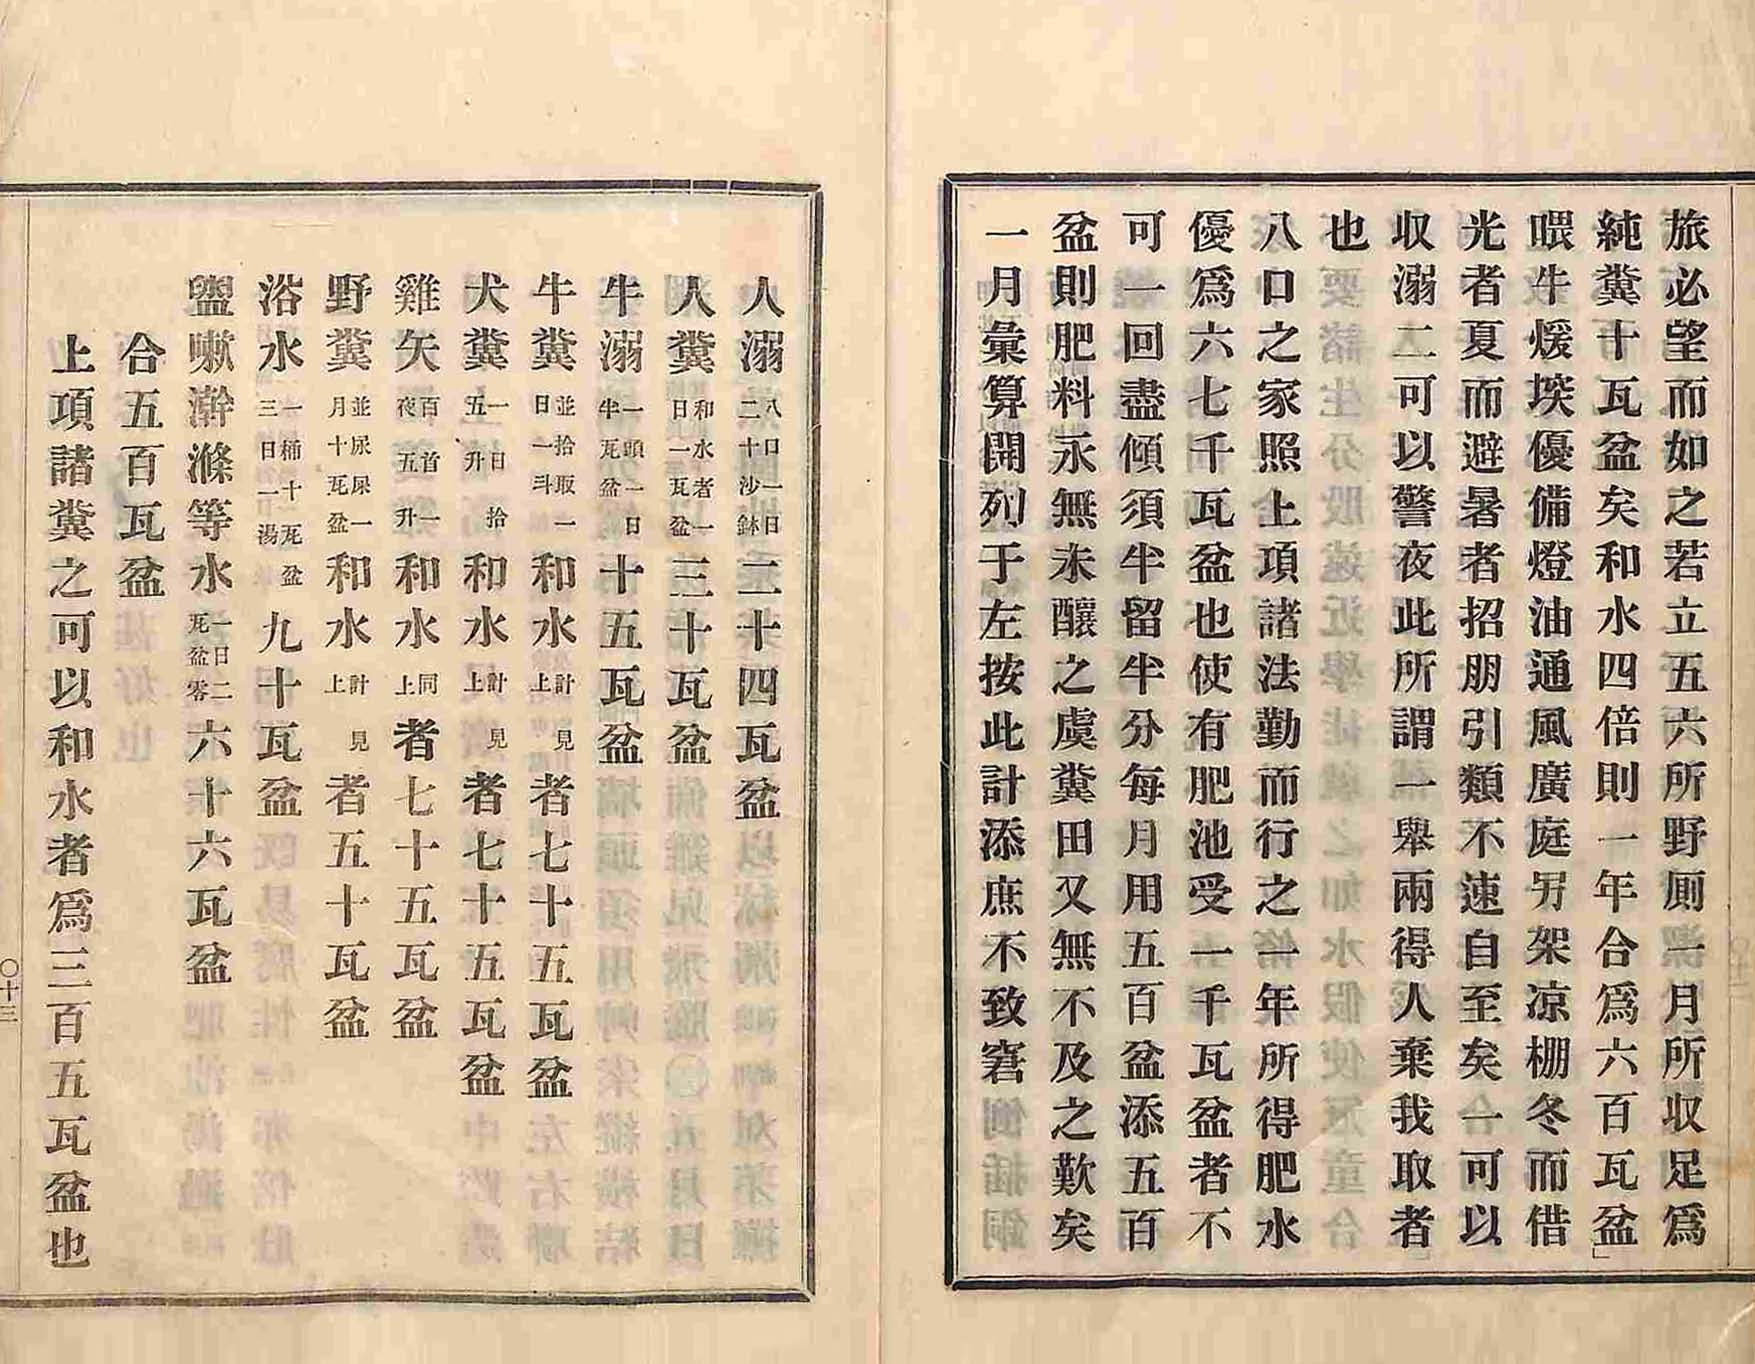 旅必望而如之若立五六所野厠一月所收足爲
純糞十瓦盆矣和水四倍則一年合爲六百瓦盆」
喂牛煖堗優備燈油通風廣庭另架凉棚冬而借
光者夏而避暑者招朋引類不速自至矣一可以
收溺二可以警夜此所謂一擧兩得人棄我取者」
也
八口之家照上項諸法勤而行之一年所得肥水
優爲六七千瓦盆也使有肥池受一千瓦盆者不
可一回盡傾須半留半分每月用五百盆添五百
盆則肥料永無未釀之虞糞田又無不及之歎矣
一月彙算開列于左按此計添庶不致窘
人溺八口一日二十沙鉢二十四瓦盆
人糞和水者一日一瓦盆三十瓦盆
牛溺一頭一日半瓦盆十五瓦盆
牛糞並拾取一日一斗和水計見上者七十五瓦盆
犬糞一日拾五升和水計見上者七十五瓦盆
雞矢百首一夜五升和水同上者七十五瓦盆
野糞並尿屎一月十瓦盆和水計見上者五十瓦盆
浴水一桶十瓦盆三日一湯九十瓦盆
盥嗽澣滌等水一日二瓦盆零六十六瓦盆
合五百瓦盆
上項諸糞之可以和水者爲三百五瓦盆也
〇十三